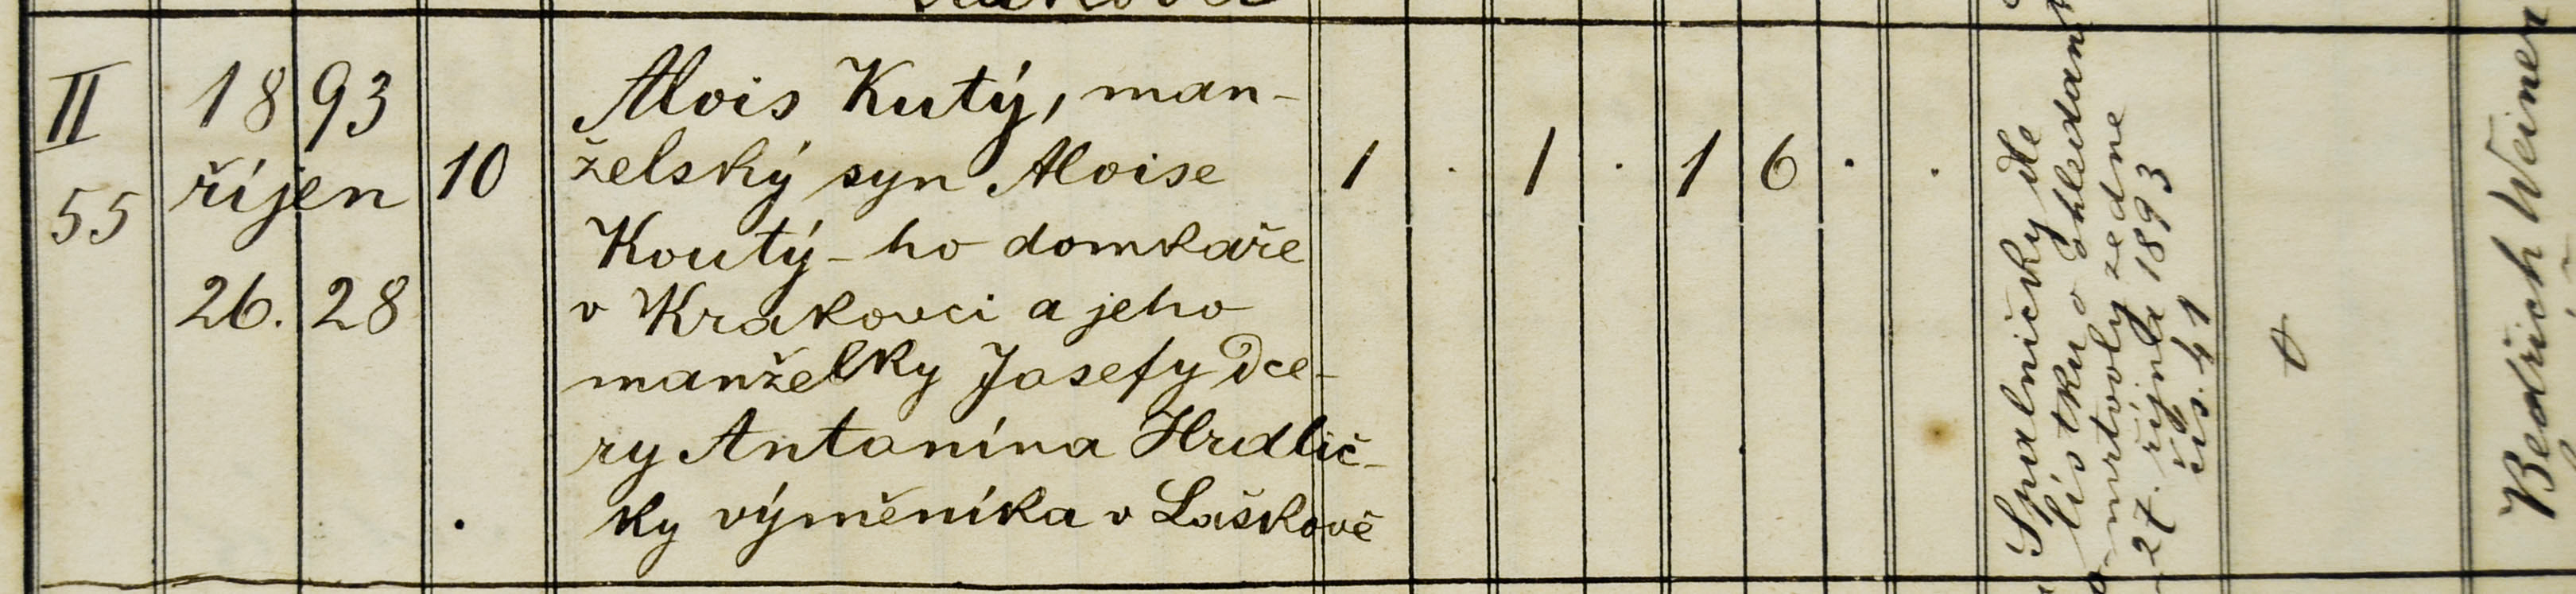 II
55
18 93
říjen
26. 28
10
Alois Kutý, man-
želský syn Aloise
Koutý-ho domkaře
v Krakovci a jeho
manželky Josefy dce-
ry Antonína Hrdlič-
ky výměníka v Laškově
1 . 1 . 1 6 . .
Spalničky dle
lístku o ohledání
mrtvoly ze dne
27. října 1893
čís. 41
Bedřich Weiner